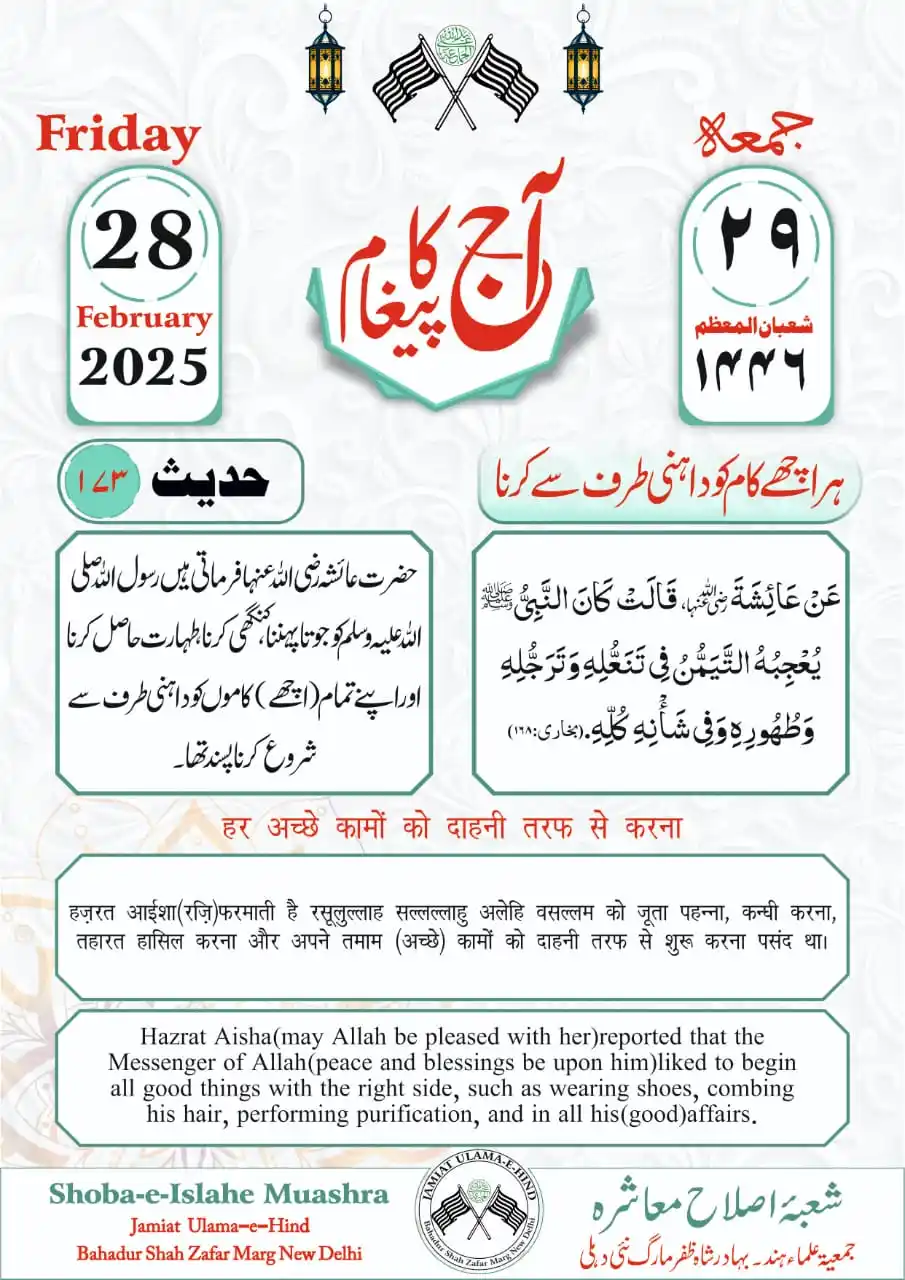 Friday
28
February
2025
جمعہ
۲۹
شعبان المعظم
۱۴۴۶
آج کا پیغام
ہر اچھے کام کو داہنی طرف سے کرنا
حدیث
۱۷۳
عَنْ عَائِشَةَ رضی اللہ عنہا، قَالَتْ كَانَ النَّبِيُّ ﷺ
يُعْجِبُهُ التَّيَمُّنُ فِي تَنَعُّلِهِ وَتَرَجُّلِهِ
وَطُهُورِهِ وَفِي شَأْنِهِ كُلِّهِ. (بخاری: ۱۶۸)
حضرت عائشہ رضی اللہ عنہا فرماتی ہیں رسول اللہ صلی
اللہ علیہ وسلم کو جوتا پہننا، کنگھی کرنا، طہارت حاصل کرنا
اور اپنے تمام (اچھے) کاموں کو داہنی طرف سے
شروع کرنا پسند تھا۔
हर अच्छे कामों को दाहनी तरफ से करना
हज़रत आईशा(रज़ि)फरमाती है रसूलुल्लाह सल्लल्लाहु अलेहि वसल्लम को जूता पहन्ना, कन्घी करना,
तहारत हासिल करना और अपने तमाम (अच्छे) कामों को दाहनी तरफ से शुरू करना पसंद था।
Hazrat Aisha(may Allah be pleased with her)reported that the
Messenger of Allah(peace and blessings be upon him)liked to begin
all good things with the right side, such as wearing shoes, combing
his hair, performing purification, and in all his(good)affairs.
Shoba-e-Islahe Muashra
Jamiat Ulama-e-Hind
Bahadur Shah Zafar Marg New Delhi
JAMIAT ULAMA-E-HIND
Bahadur Shah Zafar Marg New Delhi
شعبۂ اصلاح معاشرہ
جمعیۃ علماء ہند۔ بہادر شاہ ظفر مارگ نئی دہلی